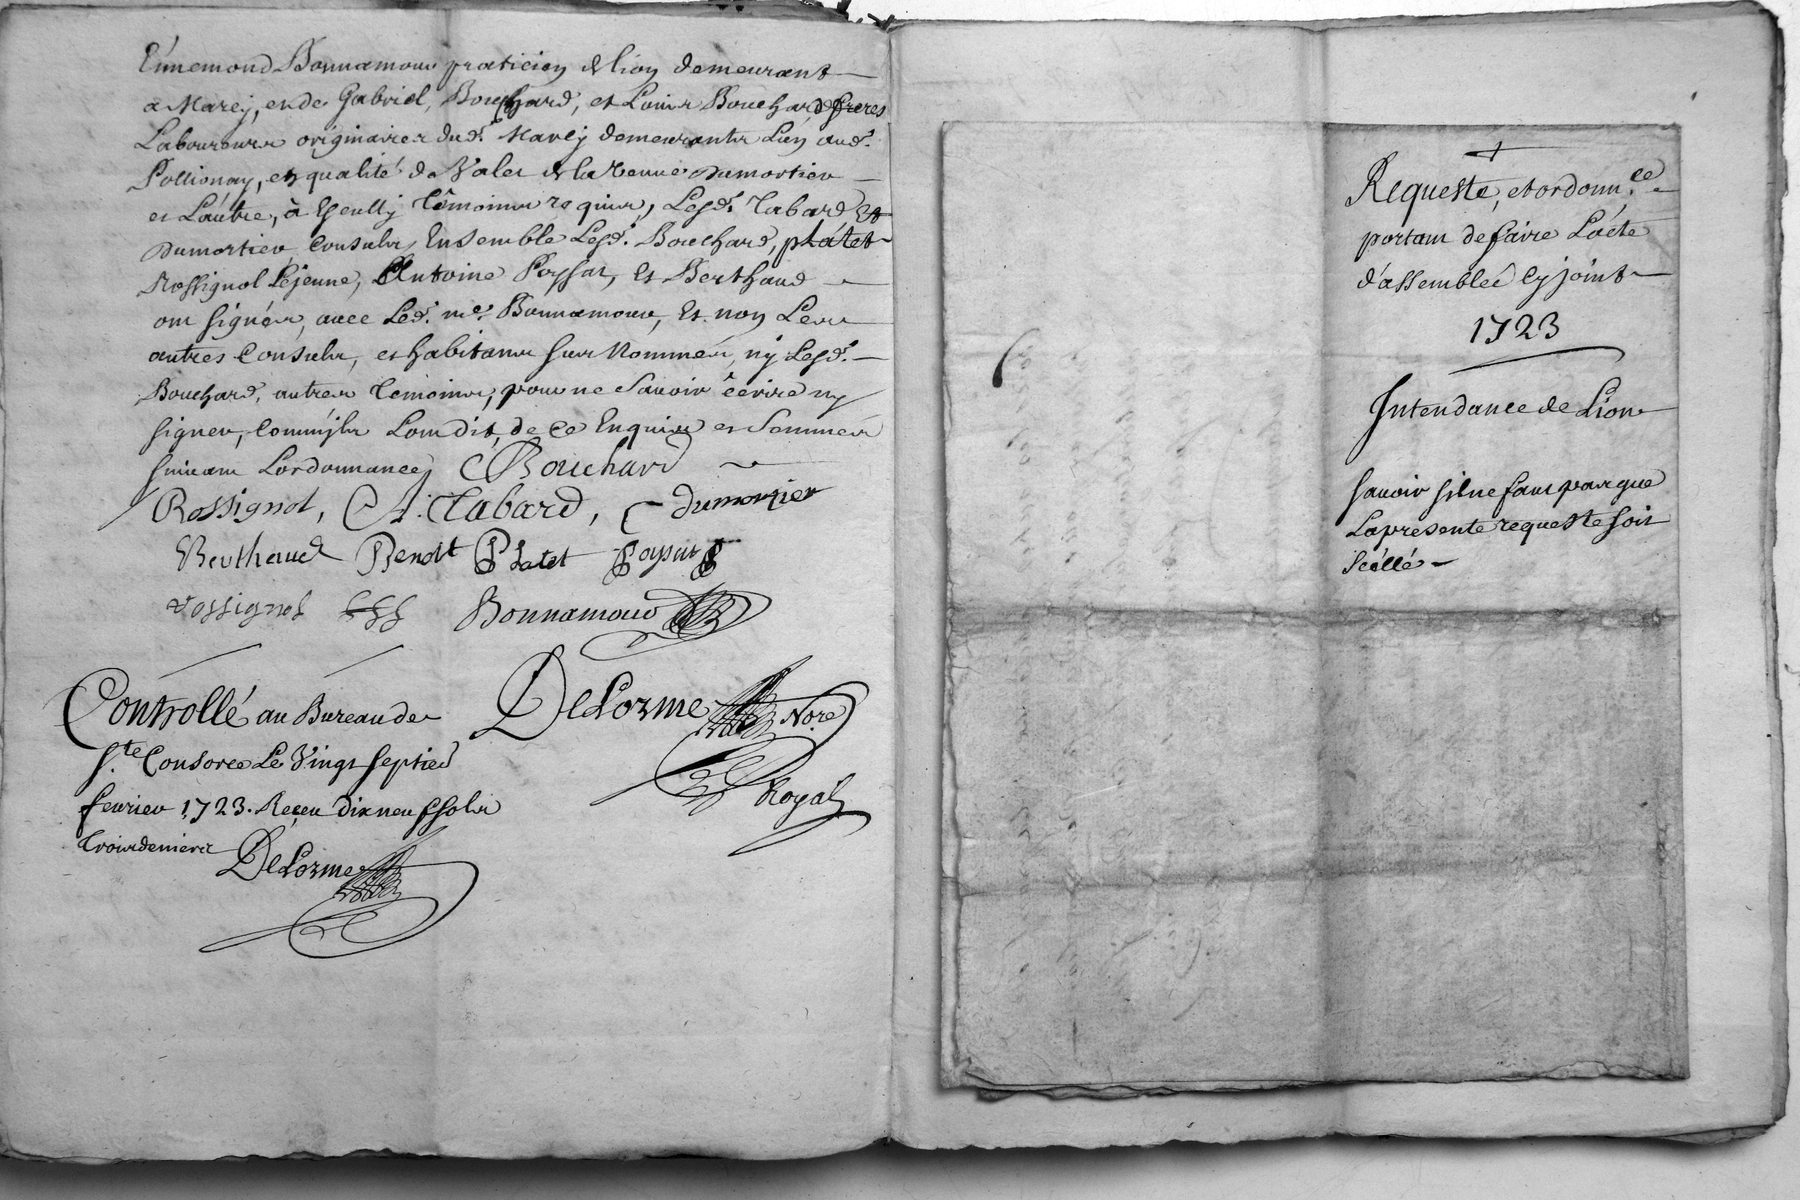 Ennemond Bonnamour praticien de lion demeurant
a Marcy, et de Gabriel, Bouchard, et Louis Bouchard freres
Laboureurs originaires dud.t Marcy demeurants L'un aud.t
Pollionay, en qualité de Valet de la veuve Dumortier
et Lautre, à Escully témoins requis, Lesd.t Tabard, Et
Dumortier Consuls, Ensemble Lesd.t Bouchard, platet
Rossignol Lejeune, Antoine Poysat, Et Berthaud
ont signés, avec Led.t me. Bonnamour, Et non Les
autres Consuls, et habitans sur Nommés, ny Lesd.t
Bouchard, autres temoins, pour ne Sauoir écrire ny
signer, comm'ils Lont dit, de ce Enquis et Sommés
suiuant Lordonnance, CBouchard
Rossignol, A. Tabard, C Dumortier
Berthaud Benoit Platet Poysat
rossignol Bonnamour
DeLorme Nore
Royal
Controllé au Bureau de
s.te Consorce Le Vingt septie
feurier 1723. Reçeu dix neuf sols
trois deniers
DeLorme
Requeste, et ordonn.ce
portant de faire L'acte
d'assemblée cy joint
1723
Intendance de Lion
sauoir sil ne faut pas que
La presente requeste soit
scéllé